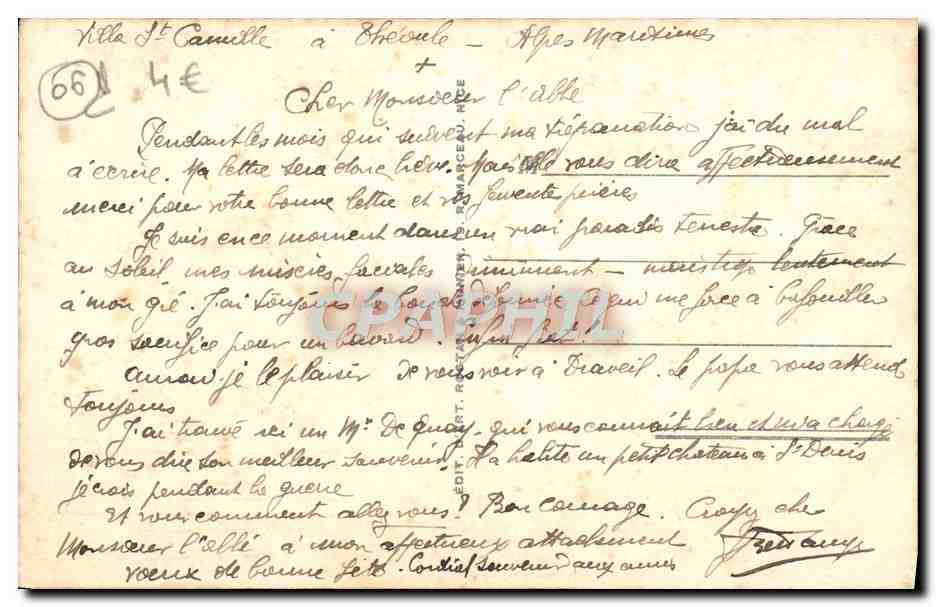 Villa St Camille à Théoule - Alpes Maritimes
06 4€
+
Cher Monsieur l'abbé
Pendant les mois qui suivent ma trépanation j'ai du mal
à écrire. Ma lettre sera donc brève. Mais vous dira affectueusement
merci pour votre bonne lettre et vos ferventes prières
Je suis en ce moment dans un vrai paradis terrestre. Grace
au soleil mes misères faciales diminuent - mais trop lentement
à mon gré. J'ai toujours la bouche ce qui me force à bafouiller
gros sacrifice pour un bavard. Enfin fiat!
Aurai-je le plaisir de vous voir à Draveil. Le papa vous attend
toujours
J'ai trouvé ici un Mr De Quay qui vous connait bien et m'a chargé
de vous dire son meilleur souvenir. Il a habité un petit chateau à St Denis
je crois pendant la guerre
Et vous comment allez vous? Bon courage. Croyez cher
Monsieur l'abbé à mon affectueux attachement
vœux de bonne fête. Cordial souvenir aux amis
EDIT. D'ART. ROSTAN & MUNIER, R. MARCEAU, NICE
CPAPHIL